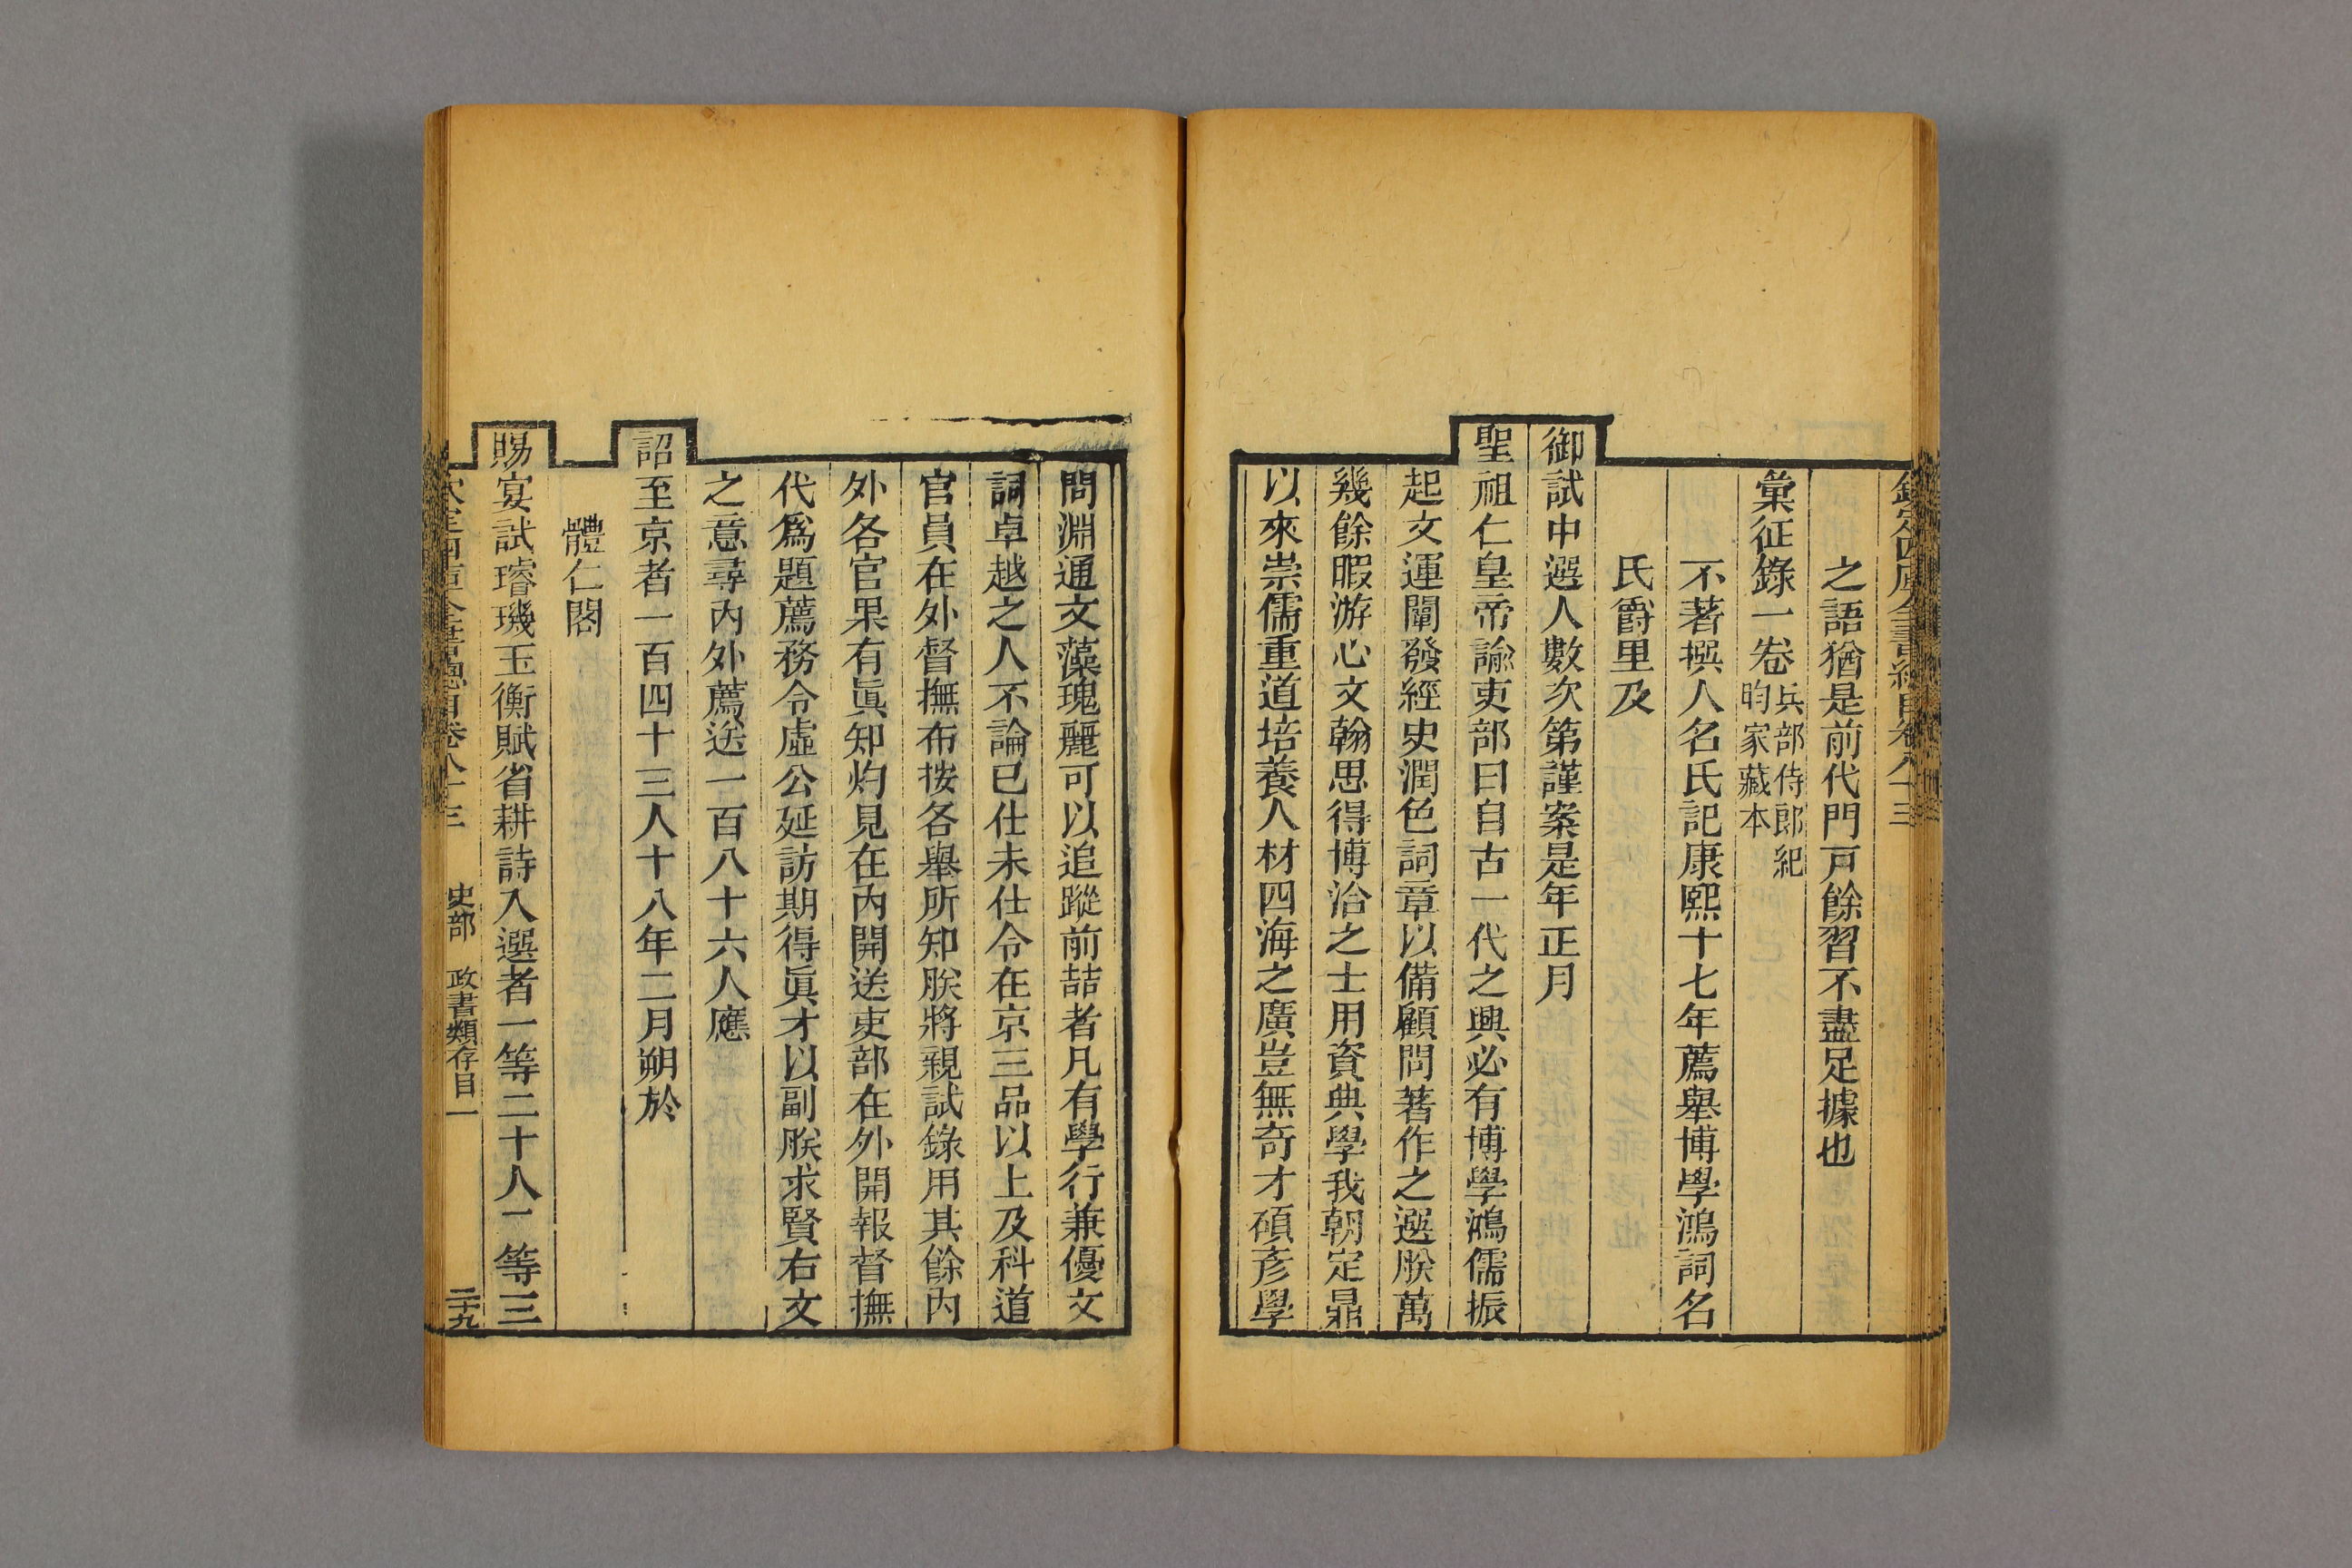 欽定四庫全書總目卷八十三
之語猶是前代門戸餘習不盡足據也
彙征錄一卷兵部侍郎紀
昀家藏本
不著撰人名氏記康熙十七年薦舉博學鴻詞名
氏爵里及
御試中選人數次第謹案是年正月
聖祖仁皇帝諭吏部曰自古一代之興必有博學鴻儒振
起文運闡發經史潤色詞章以備顧問著作之選朕萬
幾餘暇游心文翰思得博洽之士用資典學我朝定鼎
以來崇儒重道培養人材四海之廣豈無奇才碩彥學
問淵通文藻瑰麗可以追蹤前喆者凡有學行兼優文
詞卓越之人不論已仕未仕令在京三品以上及科道
官員在外督撫布按各舉所知朕將親試錄用其餘內
外各官果有眞知灼見在內開送吏部在外開報督撫
代爲題薦務令虛公延訪期得眞才以副朕求賢右文
之意尋內外薦送一百八十六人應
詔至京者一百四十三人十八年二月朔於
體仁閣
賜宴試璿璣玉衡賦省耕詩入選者一等二十八一等三
欽定四庫全書總目卷八十三 史部 政書類存目一 二十九